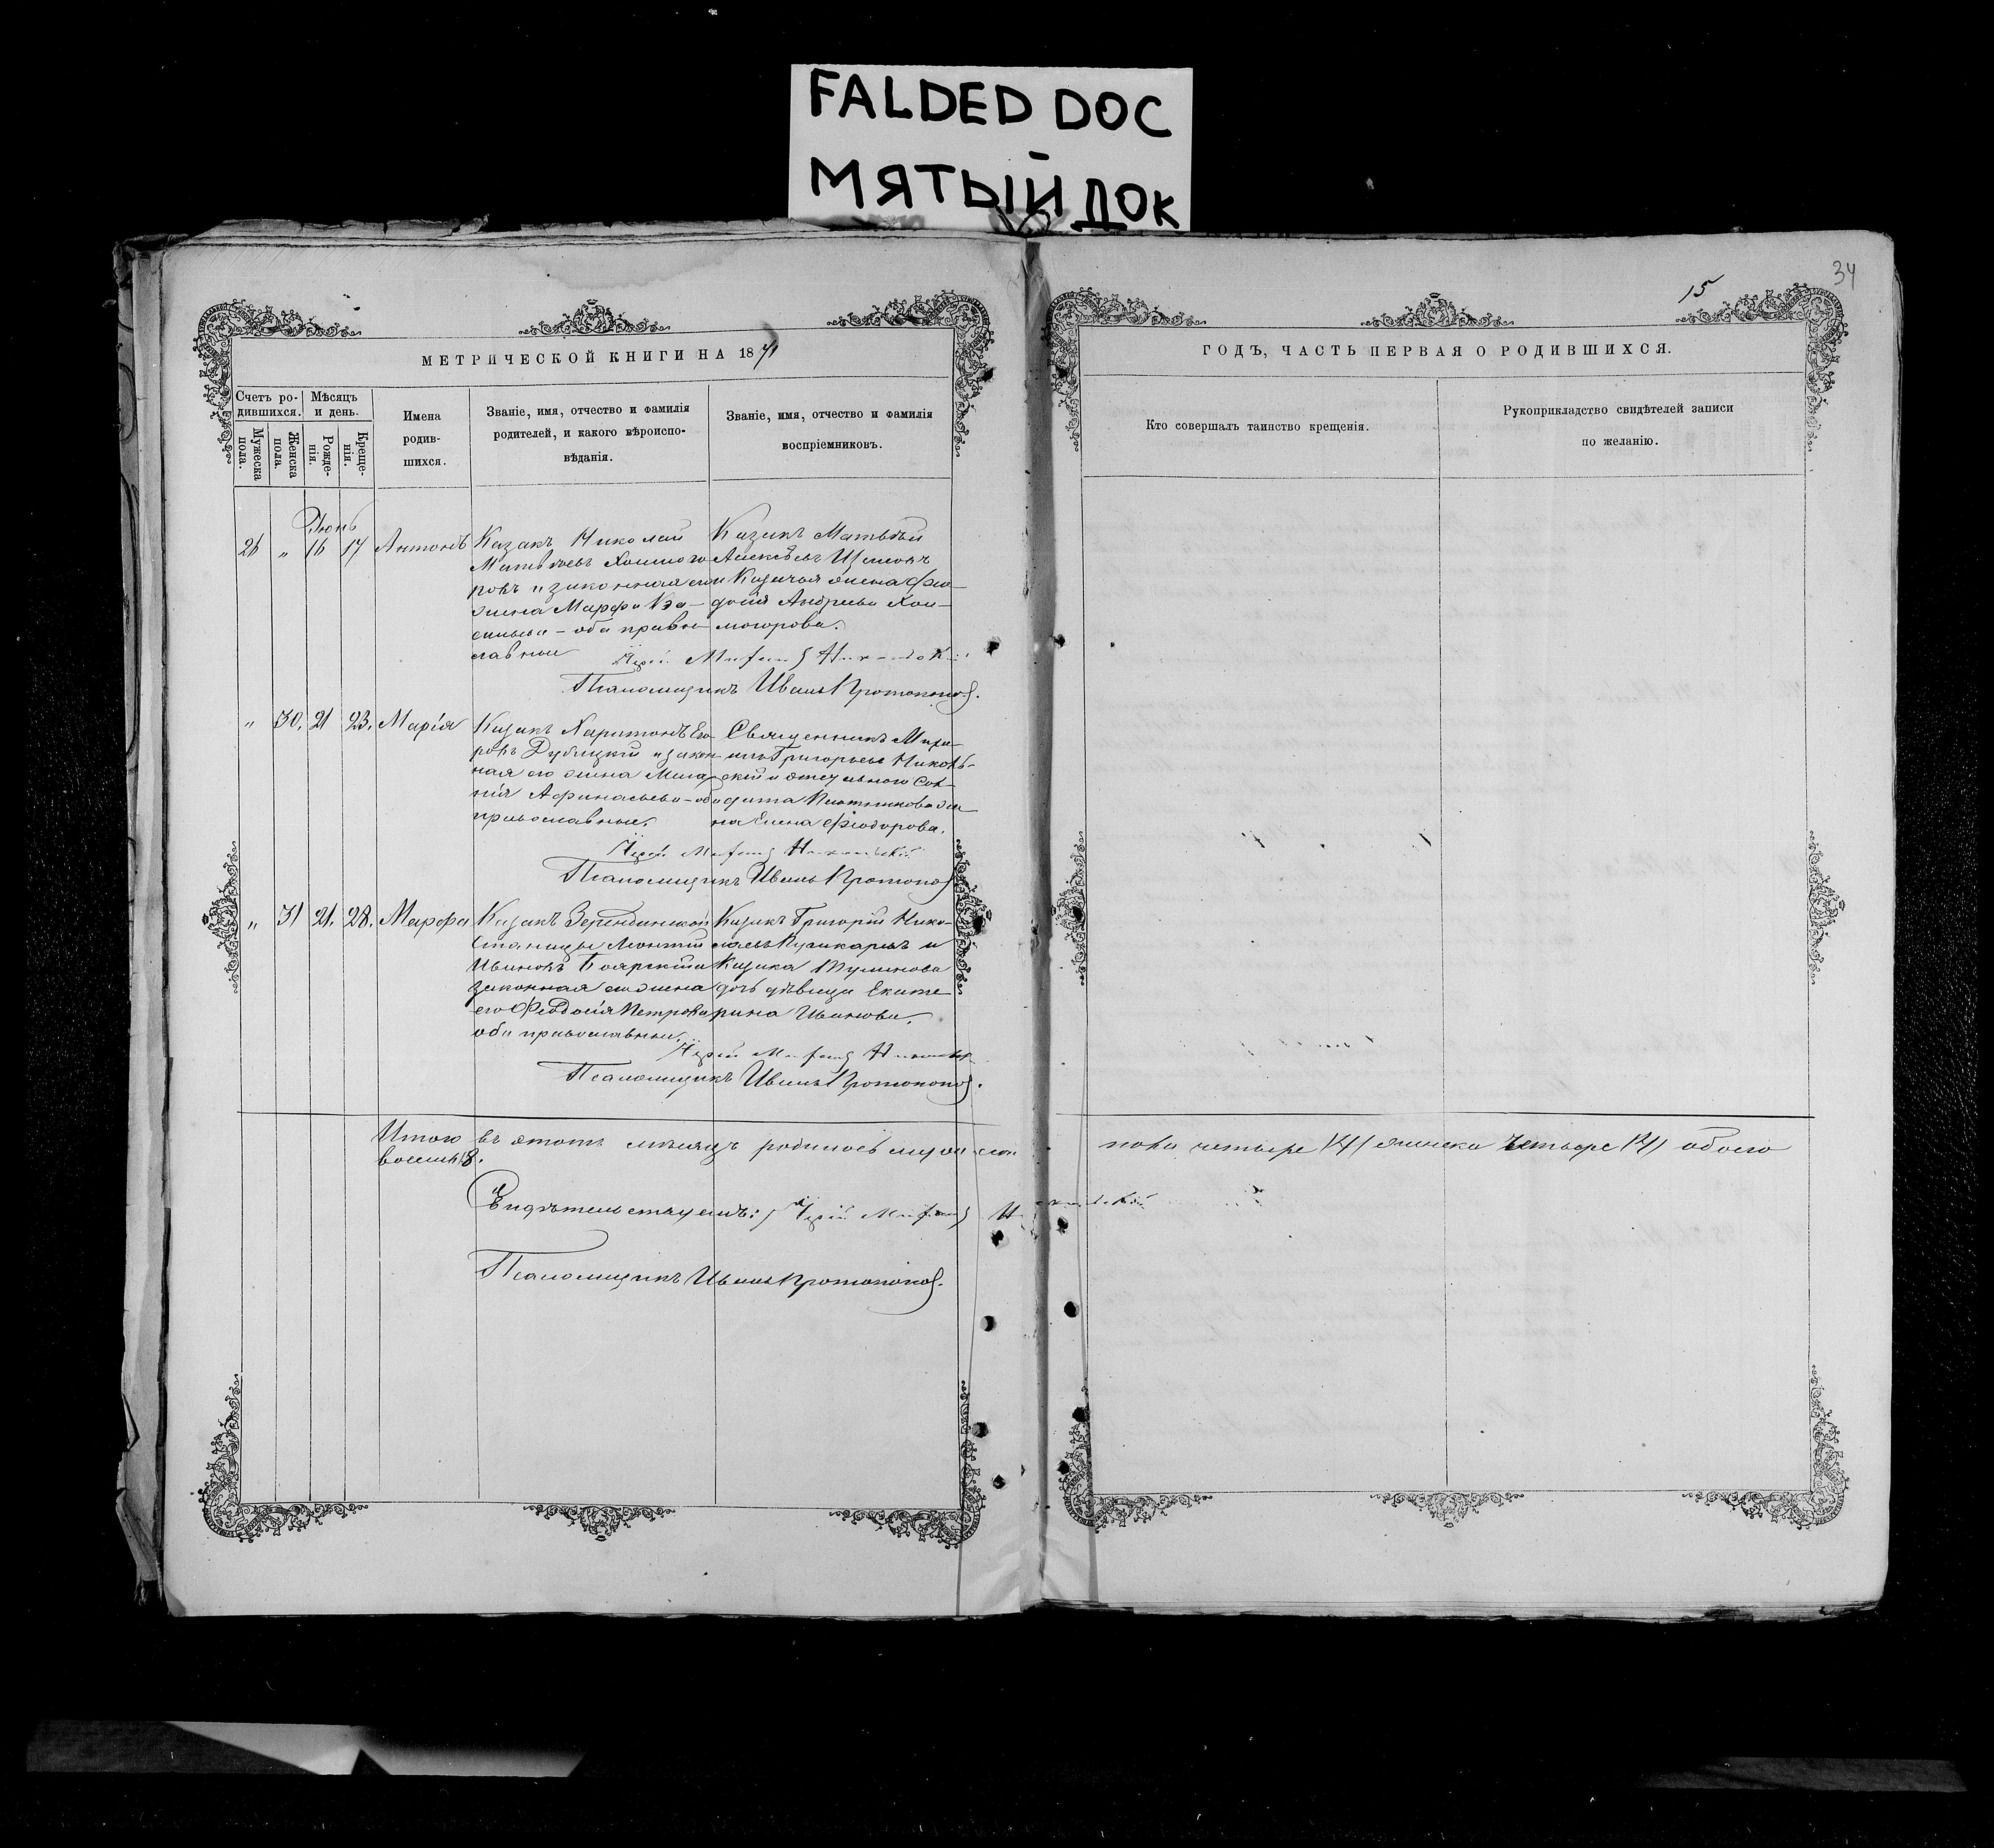 FALDED DOC
МЯТЫЙ ДОК
34
15
МЕТРИЧЕСКОЙ КНИГИ НА 1871
ГОДЪ, ЧАСТЬ ПЕРВАЯ О РОДИВШИХСЯ.
Счетъ ро-
дившихся.
Мужеска
пола.
Женска
пола.
Мѣсяцъ
и день.
Рожде-
нія.
Креще-
нія.
Имена
родив-
шихся.
Званіе, имя, отчество и фамилія
родителей, и какого вѣроиспо-
вѣданія.
Званіе, имя, отчество и фамилія
воспріемниковъ.
Кто совершалъ таинство крещенія.
Рукоприкладство свидѣтелей записи
по желанію.
Іюнь
26 „ 16 17 Антонъ
Казакъ Николай
Матвѣевъ Холмого
ровъ и законная его
жена Марфа
сильева – оба право
славные
Казакъ Матвѣй
Алексѣевъ
и Казачья жена Фео
досія Андреева Хол
могорова.
Іерей
Псаломщикъ Иванъ Протопоповъ.
„ 30. 21 23. Марія
Казакъ Харитонъ Его
ровъ Дубицкій и закон
ная его жена Мела
нія Афанасьева – оба
православные.
Священникъ Миха
илъ Григорьевъ Николь-
скій и отстувного Сол-
дата Плотникова же
на Елена Феодорова.
Іерей
Псаломщикъ Иванъ Протопоповъ
„ 31 21. 28. Марфа
Казакъ Зерендинской
Станицы Леонтій
Ивановъ Боярскій и
законная его жена
его Феодосія Петрова
оба православные.
Казакъ Григорій Нико-
лаевъ и
Казака
дочь дѣвица Екате
рина Иванова.
Іерей
Псаломщикъ Иванъ Протопоповъ.
Итого въ этотъ мѣсяцъ родилось мужеска пола четыре /4/ женска четыре /4/ обоего
восемь /8.
Свидѣтельствуемъ: Іерей
Псаломщикъ Иванъ Протопоповъ.